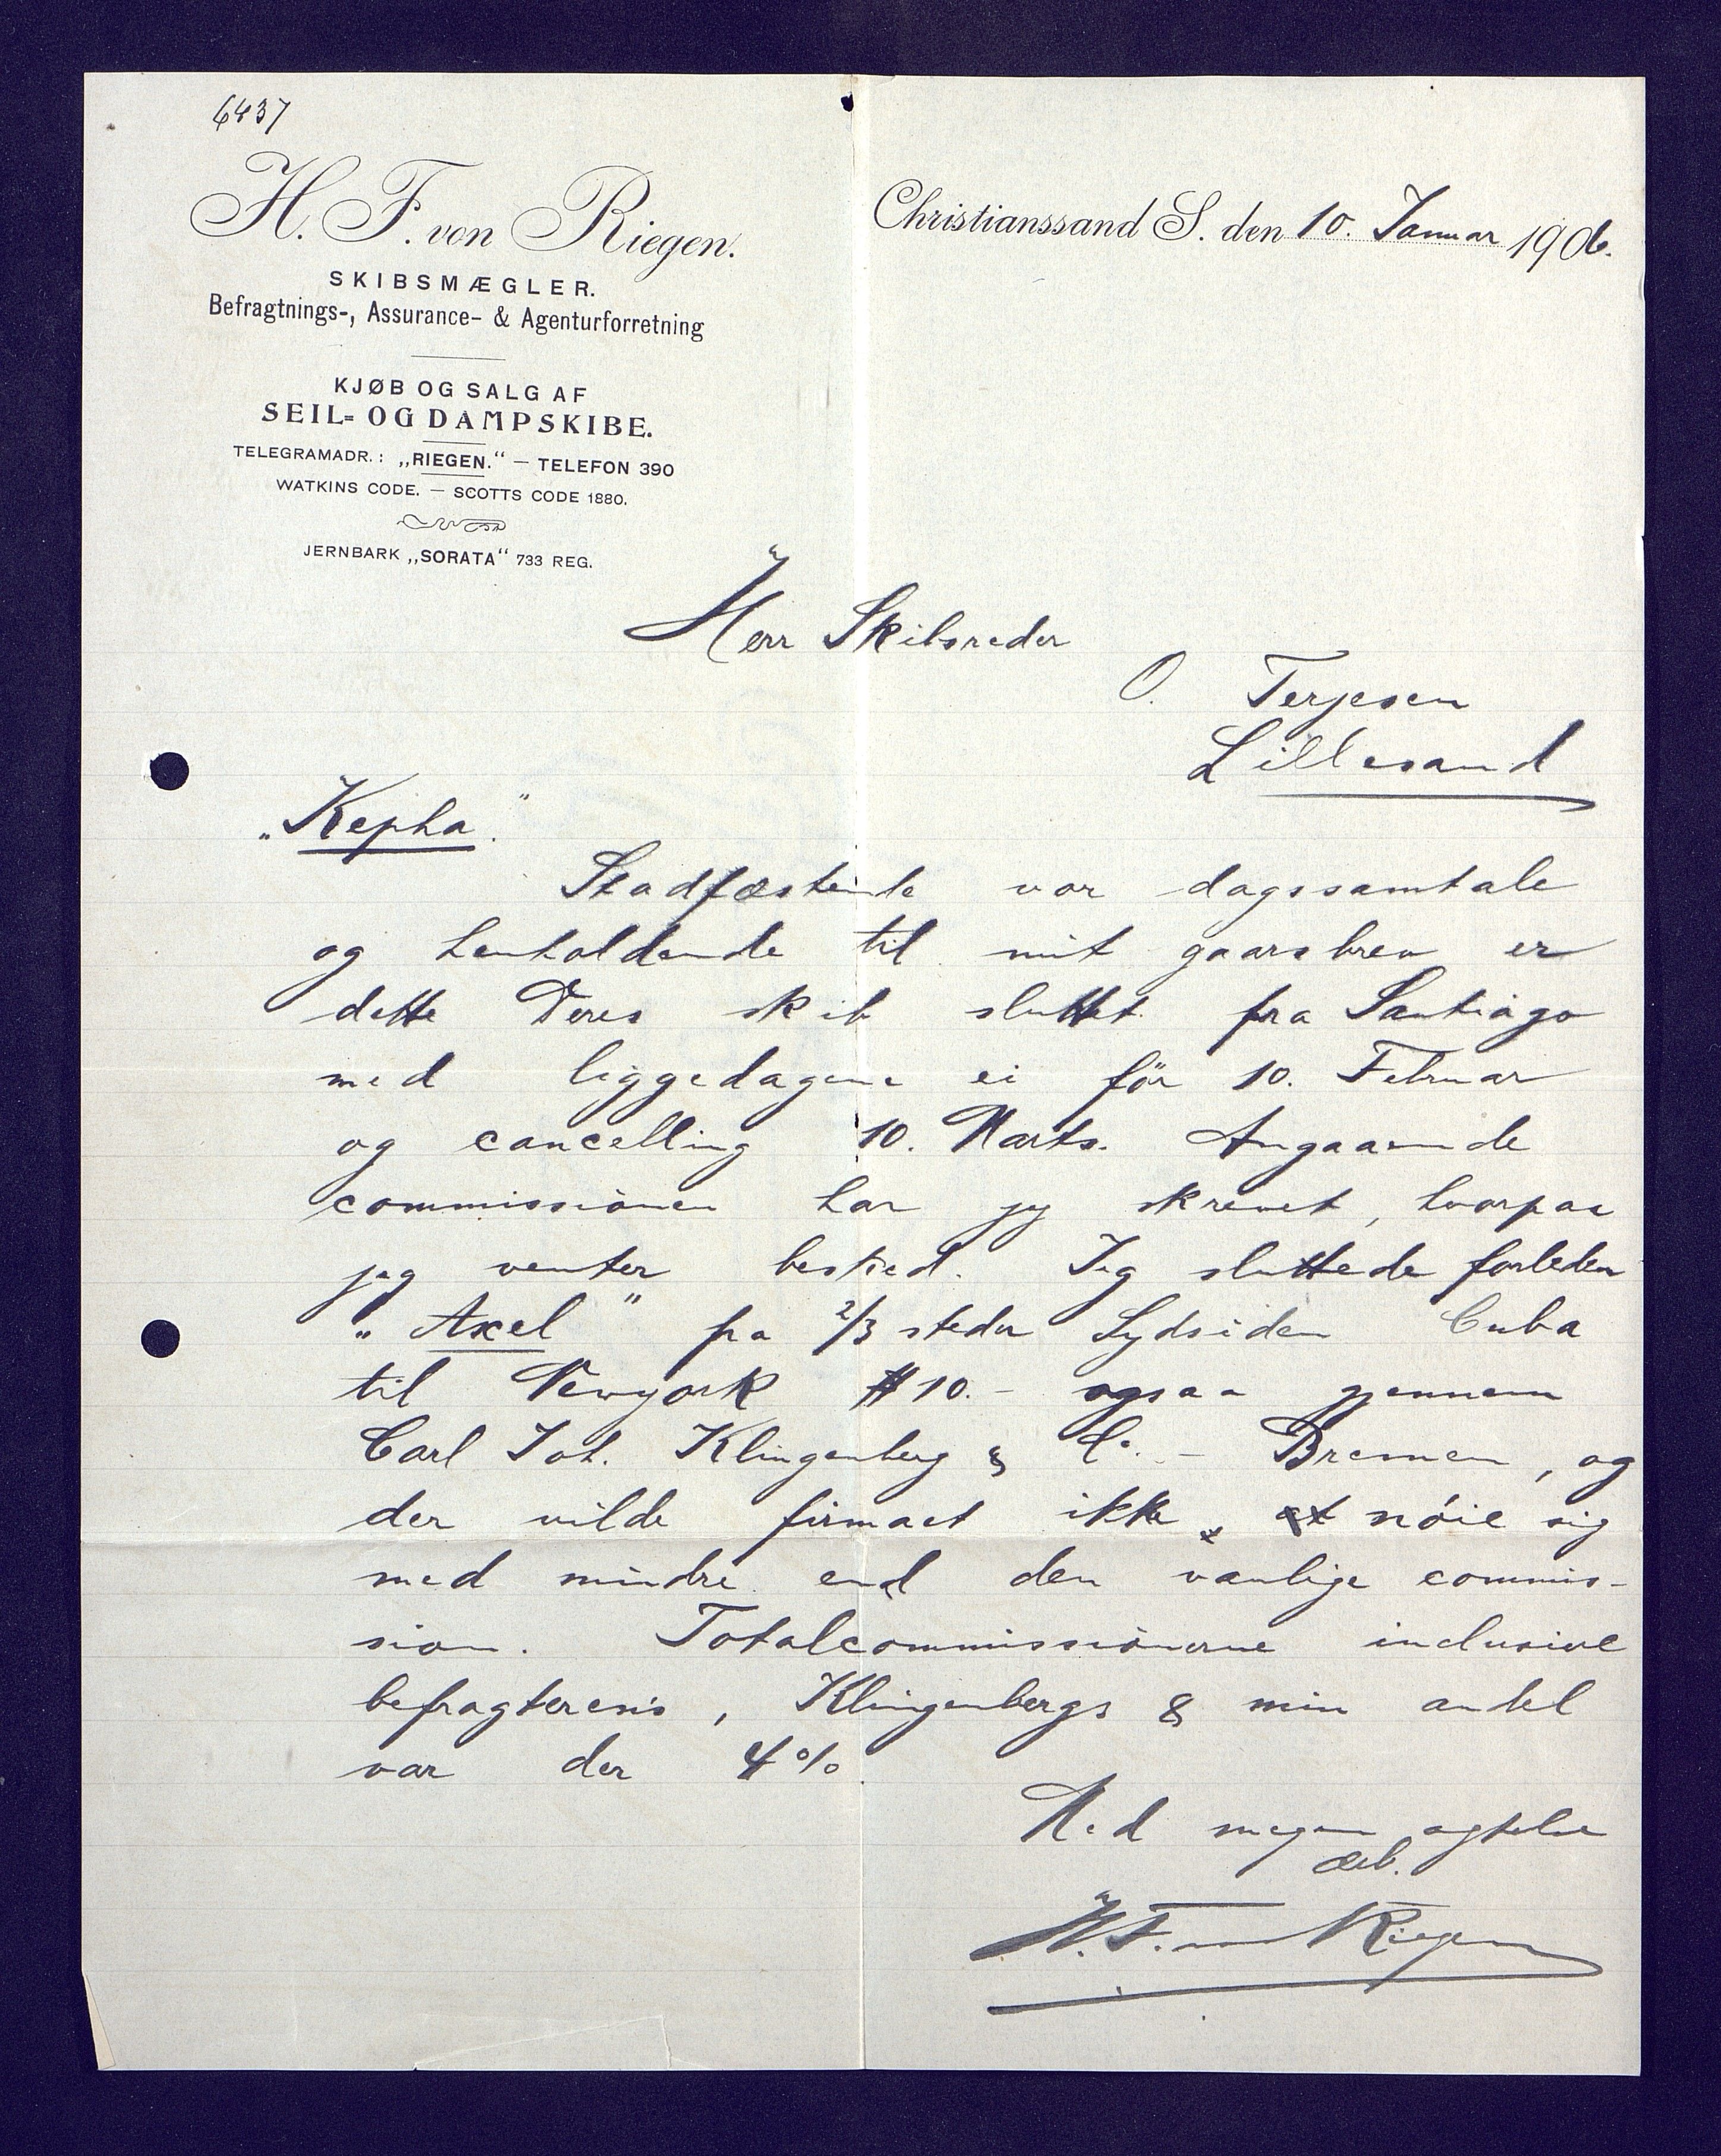 6437
H. F. von Riegen.
SKIBSMÆGLER.
Befragtnings-, Assurance- & Agenturforretning
KJØB OG SALG AF
SEIL- OG DAMPSKIBE.
TELEGRAMADR.: „RIEGEN.“ — TELEFON 390
WATKINS CODE. — SCOTTS CODE 1880.
JERNBARK „SORATA“ 733 REG.
Christianssand S. den 10. Januar 1906.
Herr Skibsreder
O. Terjesen
Lillesand
„Kepha“.
Stadfæstende vor dagssamtale
og henholdende til mit gaarsbrev er
dette Deres skib sluttet fra Santiago
med liggedagene ei før 10. Februar
og cancelling 10. Marts. Angaaende
commissionen har jeg skrevet, hvorpaa
jeg venter besked. Jeg sluttede forleden
„Axel“ fra 2/3 steder Sydsiden Cuba
til Newyork $10.- ogsaa gjennem
Carl Joh. Klingenberg & Co. - Bremen, og
der vilde firmaet ikke nöie sig
med mindre end den vanlige commis-
sion. Totalcommissionerne inclusive
befragterens, Klingenbergs & min andel
var der 4%.
Med megen agtelse
ærb.
H. F. von Riegen